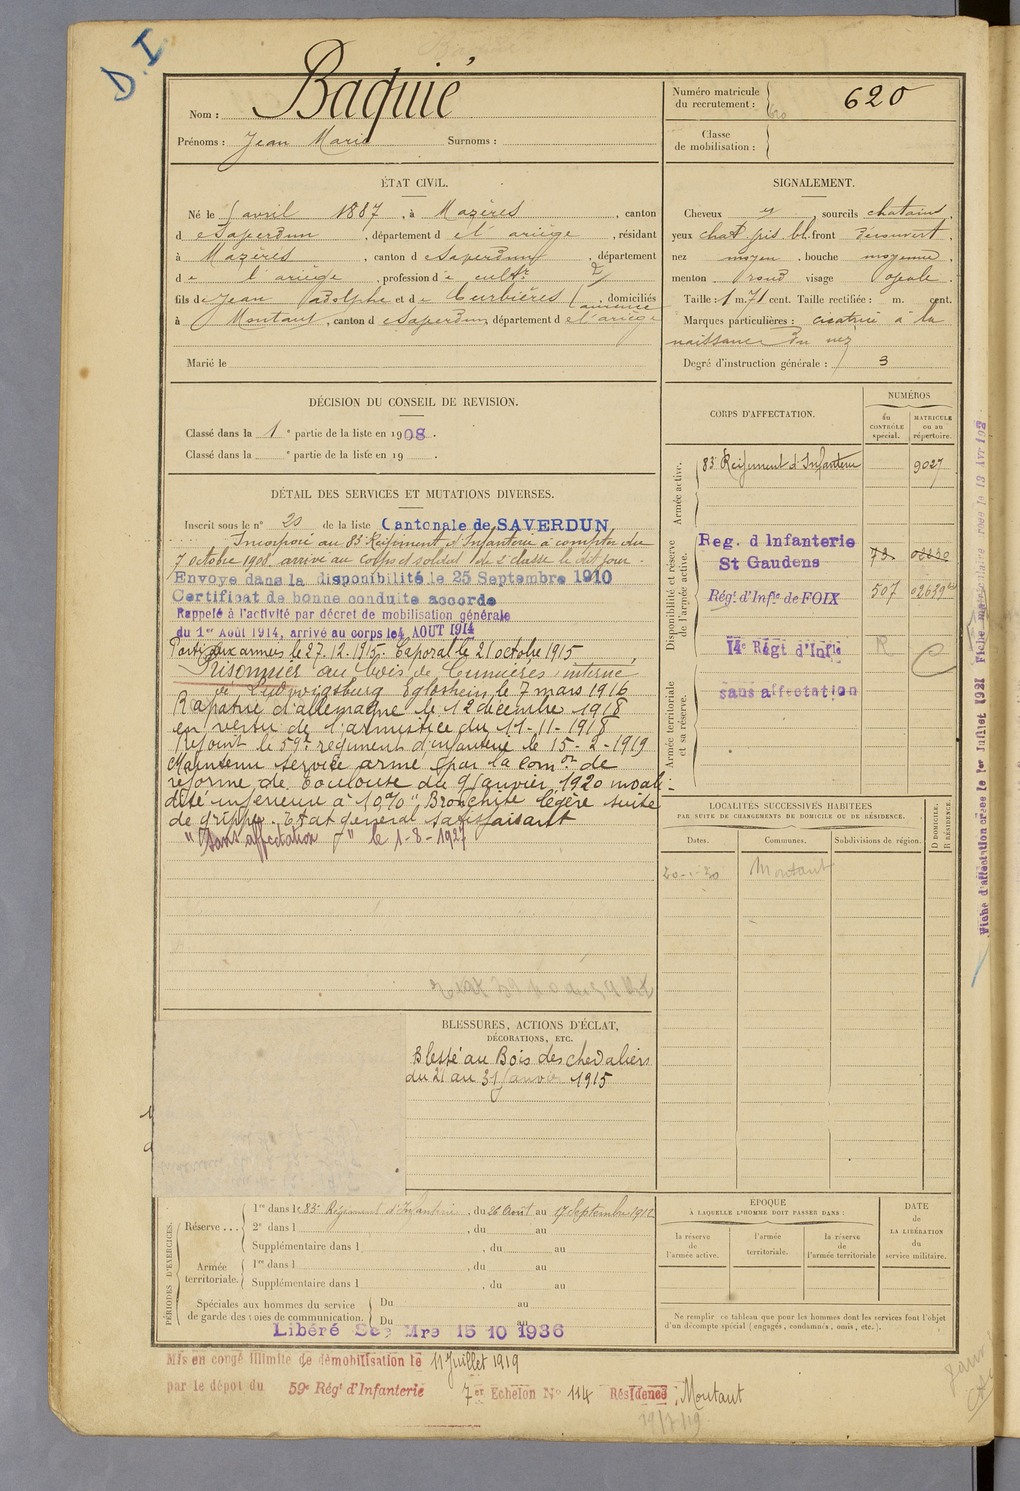 D.I.
Nom : Baquié
Prénoms : Jean Marie Surnoms :
Numéro matricule
du recrutement : 620
Classe
de mobilisation :
ÉTAT CIVIL.
Né le avril 1887, à Mazères, canton
de Saverdun, département de l'ariège, résidant
à Mazères, canton de Saverdun, département
de l'ariège, profession de cultr
fils de Jean adolphe et de Curbières Laurence, domiciliés
à Montaut, canton de Saverdun, département de l'ariège
Marié le
SIGNALEMENT.
Cheveux , sourcils chatains,
yeux chat. gris bl. front découvert,
nez moyen, bouche moyenne,
menton rond visage ovale.
Taille : 1 m. 71 cent. Taille rectifiée : m. cent.
Marques particulières : cicatrice à la
naissance du nez
Degré d'instruction générale : 3
DÉCISION DU CONSEIL DE REVISION.
Classé dans la 1e partie de la liste en 1908.
Classé dans la e partie de la liste en 19 .
DÉTAIL DES SERVICES ET MUTATIONS DIVERSES.
Inscrit sous le n° 20 de la liste Cantonale de SAVERDUN
Incorporé au 83e Régiment d'Infanterie à compter du
7 octobre 1908 arrivé au corps et soldat de 2e classe le dit jour.
Envoyé dans la disponibilité le 25 Septembre 1910
Certificat de bonne conduite accordé
Rappelé à l'activité par décret de mobilisation générale
du 1er Août 1914, arrivé au corps le 4 AOUT 1914
Parti aux armées le 27.12.1915. Caporal le 21 octobre 1915
Prisonnier au bois de Cumières, interné
à Ludwigsburg Eglosheim le 7 mars 1916
Rapatrié d'allemagne le 12 décembre 1918
en vertu de l'armistice du 11-11-1918
Rejoint le 59e régiment d'infanterie le 15-2-1919
Maintenu service armé par la comon de
réforme de Toulouse du 9 Janvier 1920 invali-
dité inférieure à 10% "Bronchite légère suite
de grippe. Etat général satisfaisant
"Sans affectation" le 1-8-1927
CORPS D'AFFECTATION.
NUMÉROS
du
CONTRÔLE
spécial.
MATRICULE
ou au
répertoire.
Armée active.
83e Régiment d'Infanterie 9027
Disponibilité et réserve
de l'armée active.
Reg. d Infanterie
St Gaudens
Régt d'Infie de FOIX 507
14e Régt d'Infie R
Armée territoriale
et sa réserve.
sans affectation
LOCALITÉS SUCCESSIVES HABITÉES
PAR SUITE DE CHANGEMENTS DE DOMICILE OU DE RÉSIDENCE.
Dates. Communes. Subdivisions de région. D DOMICILE. R RÉSIDENCE.
Montaut
BLESSURES, ACTIONS D'ÉCLAT,
DÉCORATIONS, ETC.
Blessé au Bois des chevaliers
du 21 au 31 Janvier 1915
PÉRIODES D'EXERCICES.
Réserve ... 1re dans le 83e Régiment d'Infanterie, du 26 Août au 17 Septembre 1912
2e dans l , du au
Supplémentaire dans l , du au
Armée
territoriale. 1re dans l , du au
Supplémentaire dans l , du au
Spéciales aux hommes du service
de garde des voies de communication. Du au
Du au
Libéré Ser Mre 15 10 1936
ÉPOQUE
À LAQUELLE L'HOMME DOIT PASSER DANS :
la réserve
de
l'armée active.
l'armée
territoriale.
la réserve
de
l'armée territoriale
DATE
de
LA LIBÉRATION
du
service militaire.
Ne remplir ce tableau que pour les hommes dont les services font l'objet
d'un décompte spécial (engagés, condamnés, omis, etc.).
Mis en congé illimité de démobilisation le 11 Juillet 1919
par le dépôt du 59e Régt d'Infanterie 7e Echelon N° 114 Résidence : Montaut
Fiche d'affectation créée le 1er Juillet 1921 Fiche matriculaire